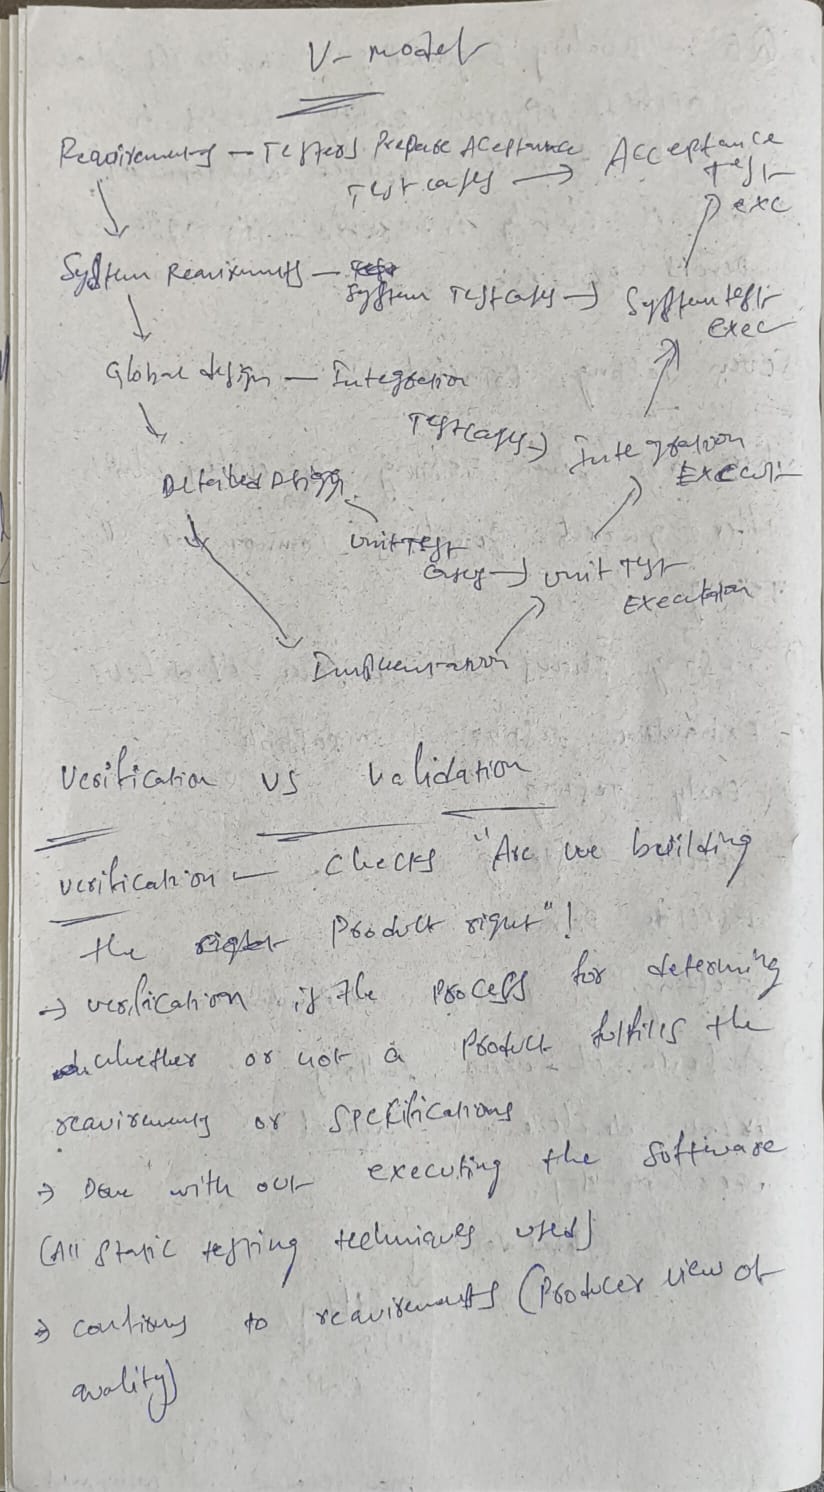 V- model
Requirements - Testers Prepare Aceptance Acceptance
Test cases → Test
exc
System Requirements -
System Test cases → System test
exec
Global design - Integration
Test cases → Integration
Execut
Detailed Design
Unit Test
cases → Unit Test
Execution
Implementation
Verification vs Validation
verification - checks "Are we building
the Product right"!
→ verification is the process for determing
whether or not a Product fulfills the
requirements or specifications
→ Done with out executing the software
(All static testing techniques used)
→ confirms to requirements (Producer view of
quality)